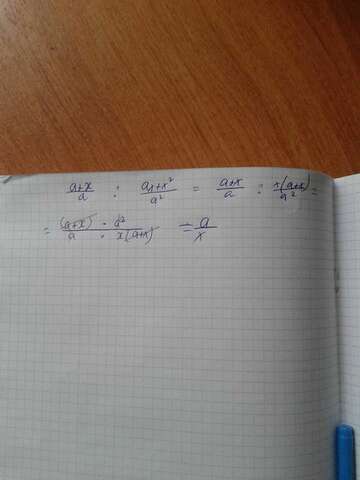 (a+x)/a : (ax+x²)/a² = (a+x)/a : x(a+x)/a² =
= (a+x) · a² / a · x(a+x) = a/x